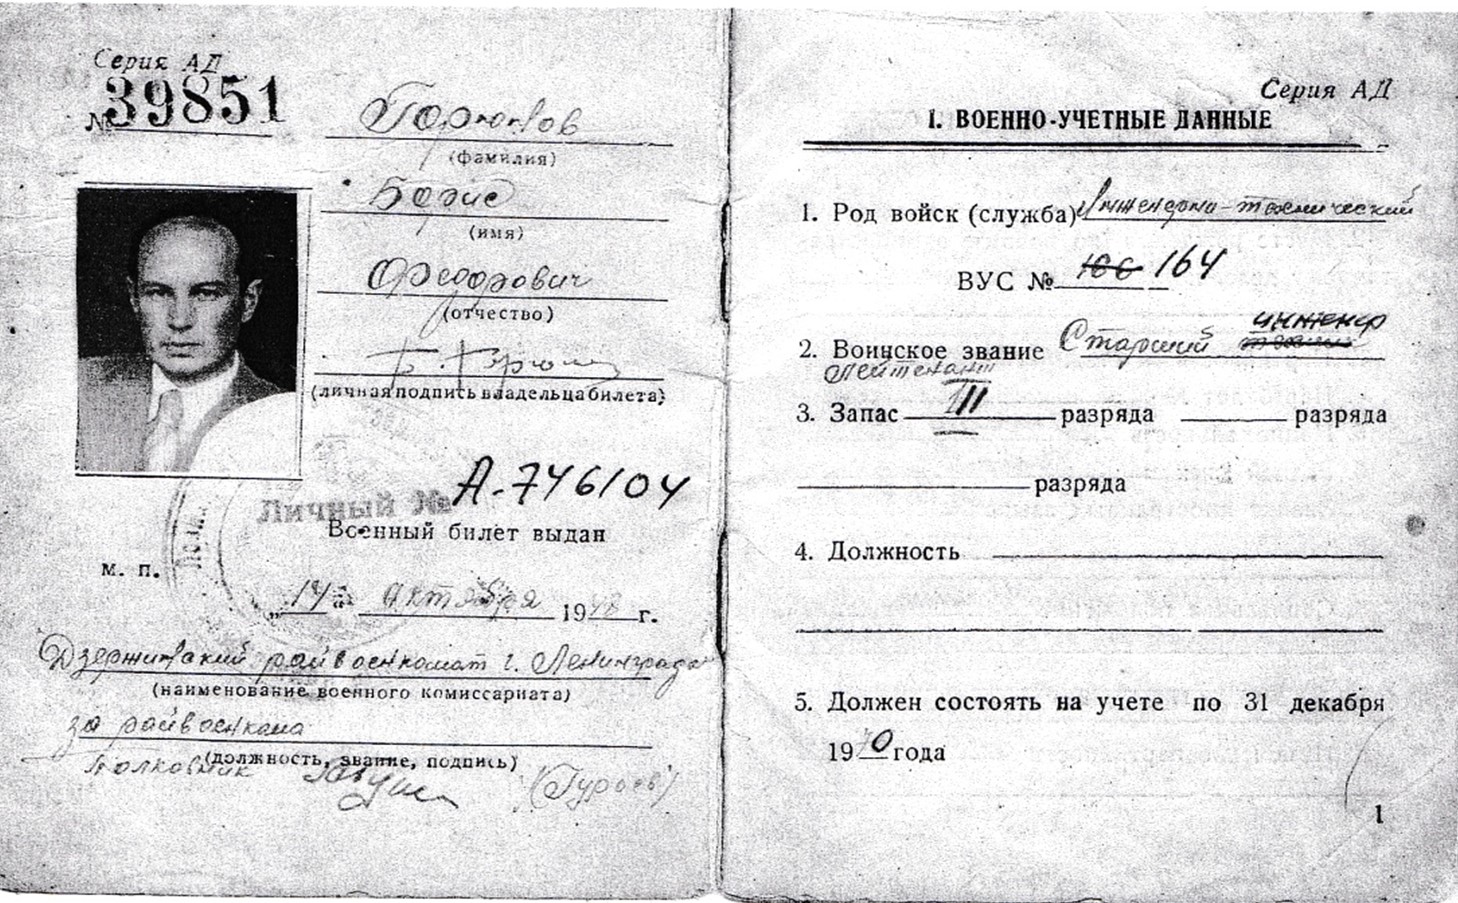 Серия АД
№ 39851
Горюнов
(фамилия)
Борис
(имя)
Федорович
(отчество)
(личная подпись владельца билета)
Личный № А-746104
Военный билет выдан
м. п.
„14“ октября 1948 г.
Дзержинский райвоенкомат г. Ленинграда
(наименование военного комиссариата)
за райвоенкома
(должность, звание, подпись)
Полковник
Серия АД
I. ВОЕННО-УЧЕТНЫЕ ДАННЫЕ
1. Род войск (служба) Инженерно-технический
ВУС № 166 164
инженер
2. Воинское звание Старший
лейтенант
3. Запас III разряда разряда
разряда
4. Должность
5. Должен состоять на учете по 31 декабря
1970 года
1